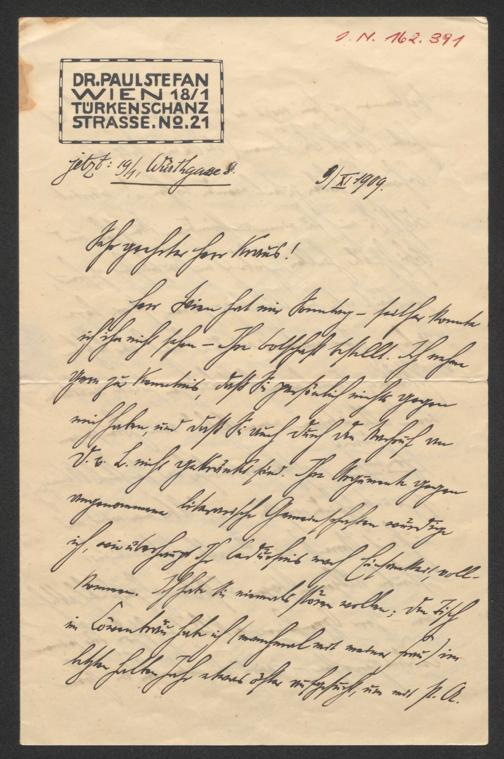 J. N. 162.391
DR. PAUL STEFAN
WIEN 18/1
TÜRKENSCHANZ
STRASSE. No. 21
jetzt: 19/1, Würthgasse 8.
9/XI 1909.
Sehr geehrter Herr Kraus!
Herr Wien hat mir Sonntag – seither konnte
ich ihn nicht sehen – Ihre Botschaft bestellt. Ich nehme
gern zur Kenntnis, daß Sie persönlich nichts gegen
mich haben und daß Sie auch durch den Nachruf an
D. v. L. nicht gekränkt sind. Ihre Argumente gegen
angenommene literarische Gemeinschaften würdige
ich, wie überhaupt Ihr Bedürfnis nach Einsamkeit, voll-
kommen. Ich habe Sie niemals stören wollen; den Tisch
im Löwenbräu habe ich (manchmal mit meiner Frau) im
letzten halben Jahr etwas öfter aufgesucht, um mit P. A.